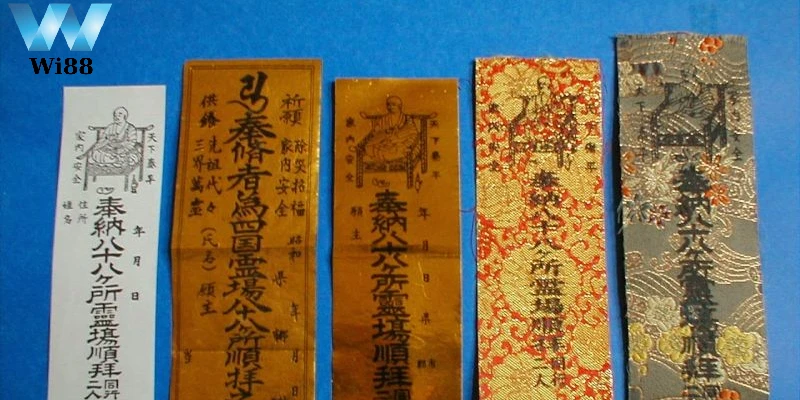 Wi88
天下泰平
家内安全
年 月 日
奉納八十八ヶ所霊場順拝 同行二人
住所
姓名
祈願 除災招福
家内安全
昭和 年 月 日
県
奉脩者為四国霊場八十八所順拝
供養 先祖代々
三界萬霊
(氏名) 願主
天下泰平
家内安全
年 月 日 県
奉納八十八ヶ所霊場順拝 同
願主
家内安全
奉納八十八ヶ所霊場順拝 同行二人
奉納八十八ヶ所霊場順拝 同